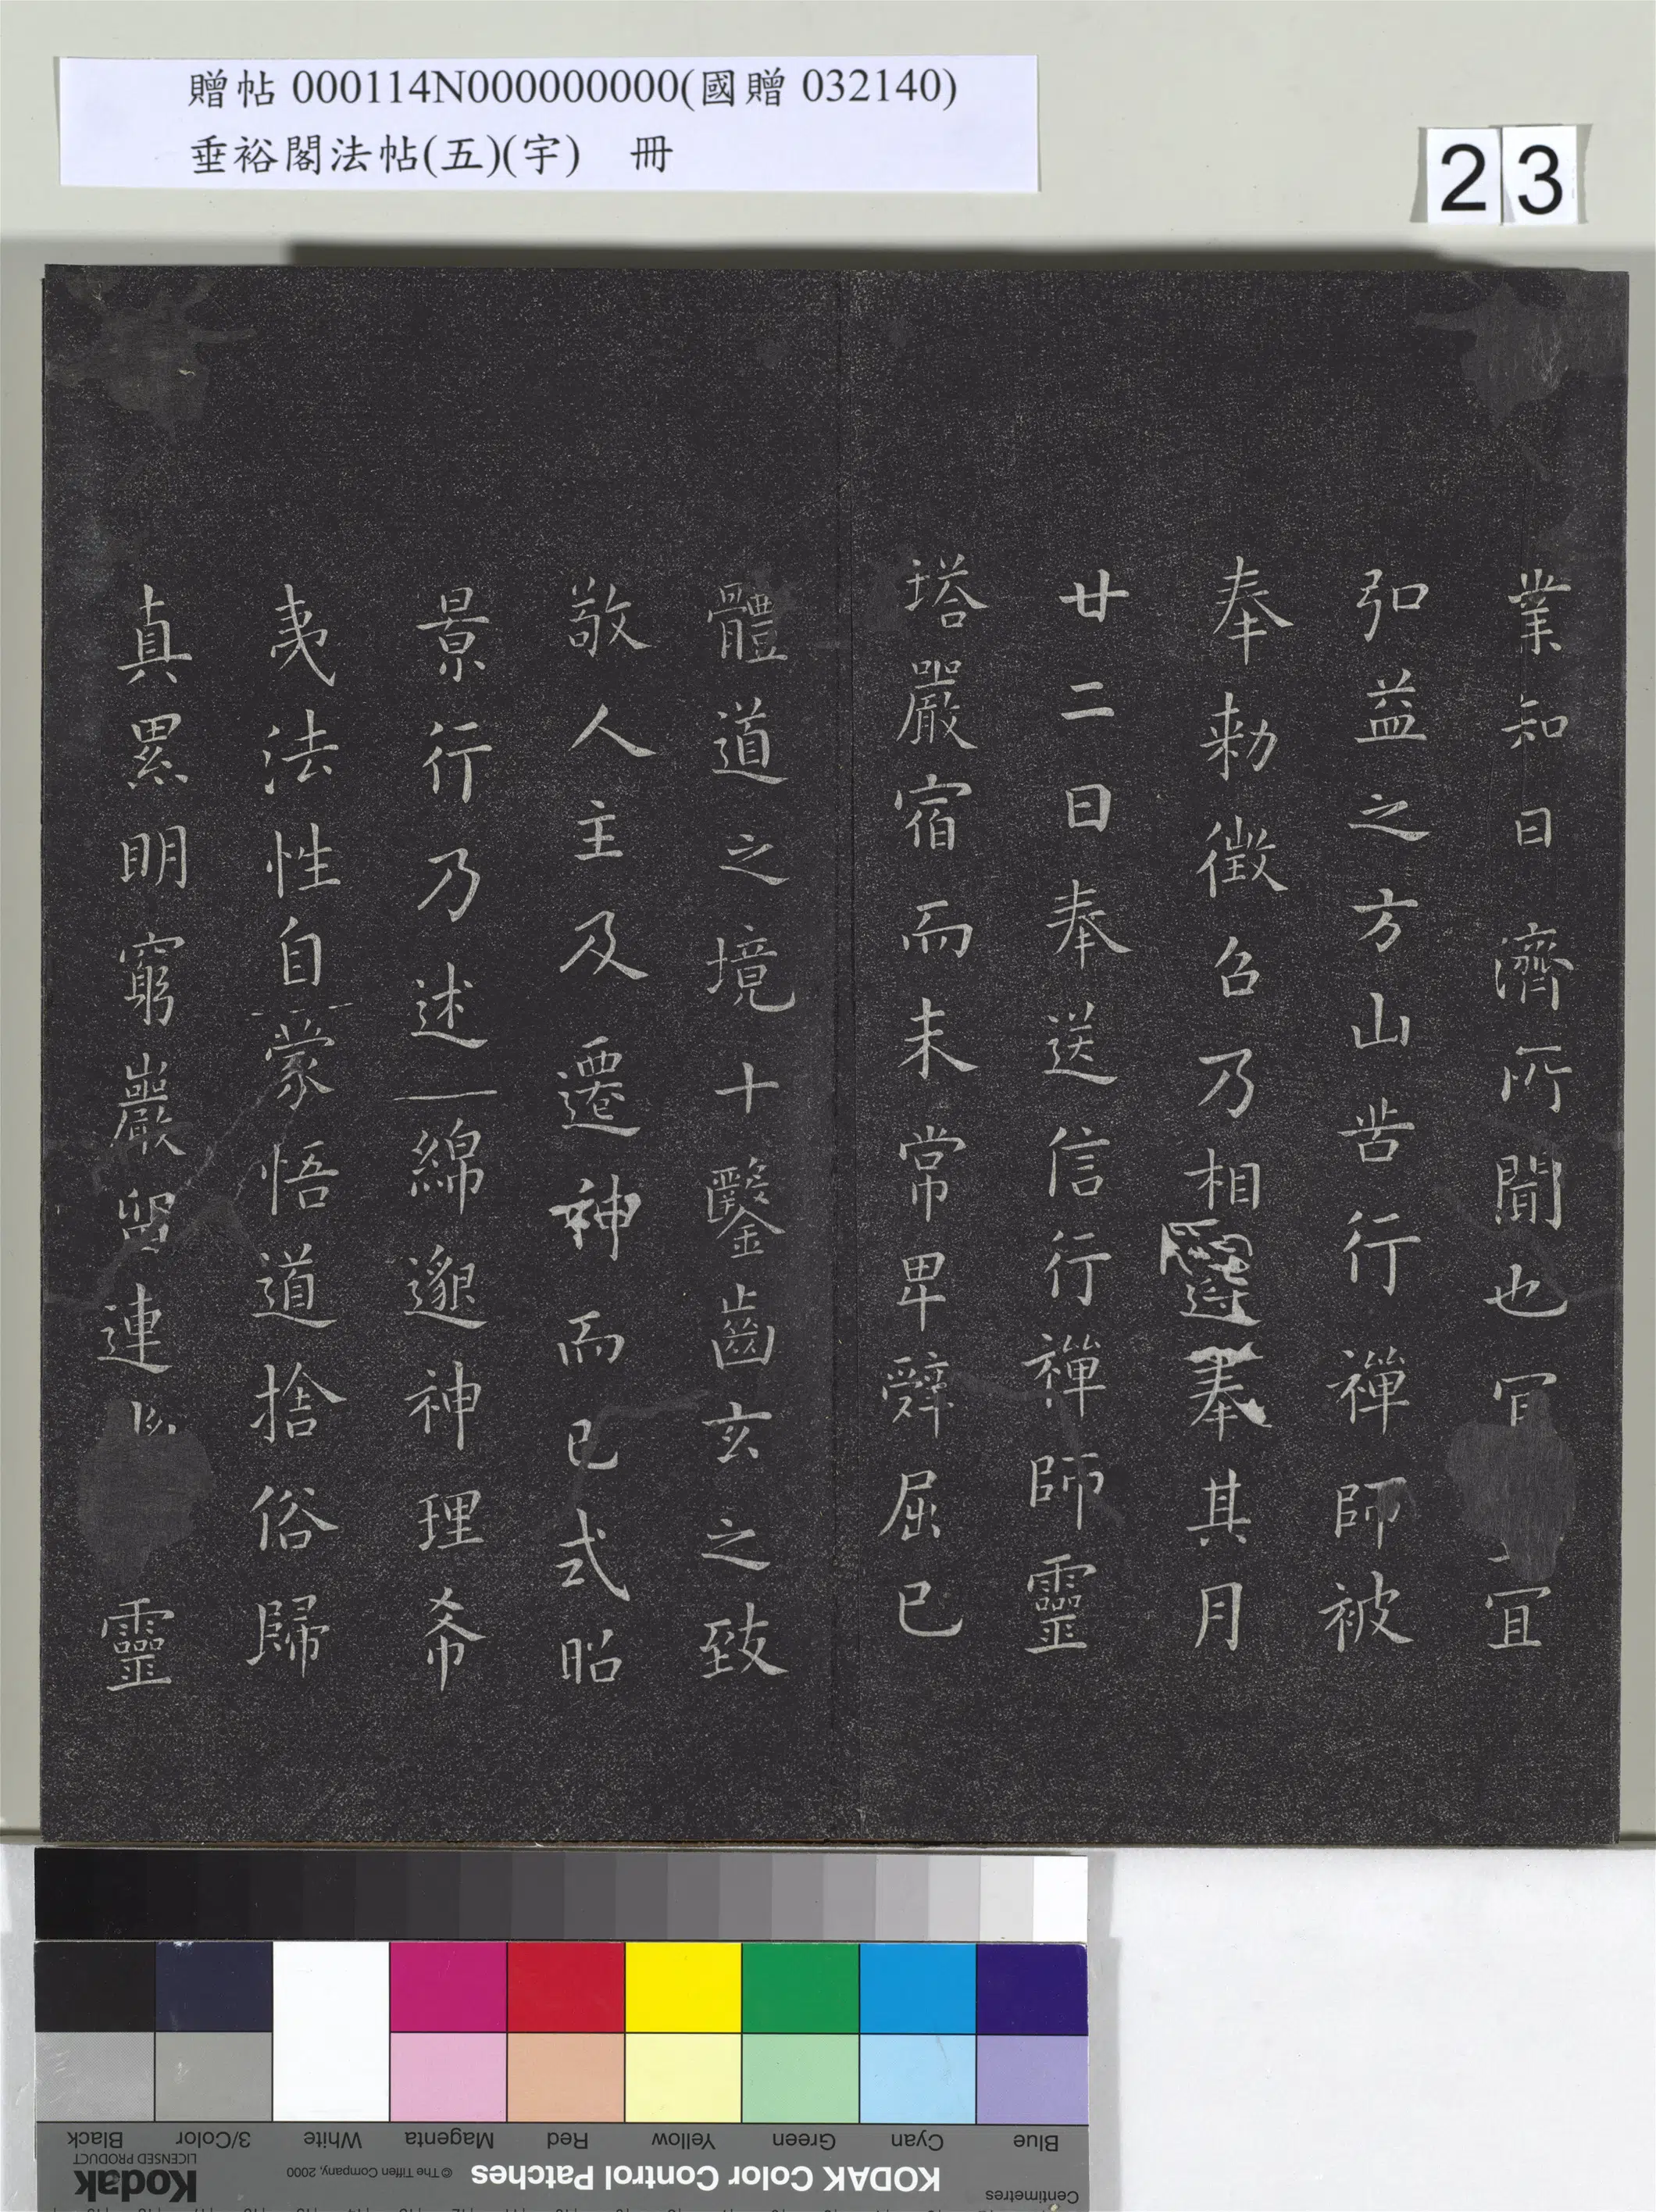 贈帖 000114N000000000(國贈 032140)
垂裕閣法帖(五)(宇) 冊
23
業知日濟所聞也宜宜
弘益之方山苦行禪師被
奉勑徵召乃相奉其月
廿二日奉送信行禪師靈
塔嚴宿而未常卑辭屈已
體道之境十鑿齒玄之致
敬人主及遷神而已式昭
景行乃述一綿邈神理希
夷法性自蒙悟道捨俗歸
真累明窮巖留連靈
Black 3/Color White Magenta Red Yellow Green Cyan Blue
Kodak LICENSED PRODUCT © The Tiffen Company, 2000 KODAK Color Control Patches Centimetres